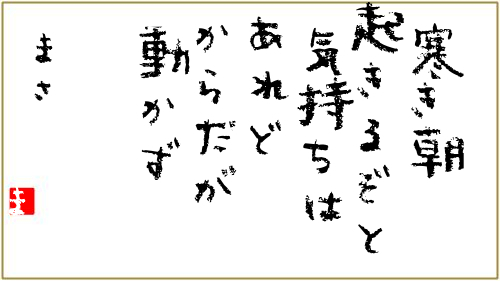 寒き朝
起きるぞと
気持ちは
あれど
からだが
動かず
まさ
ま